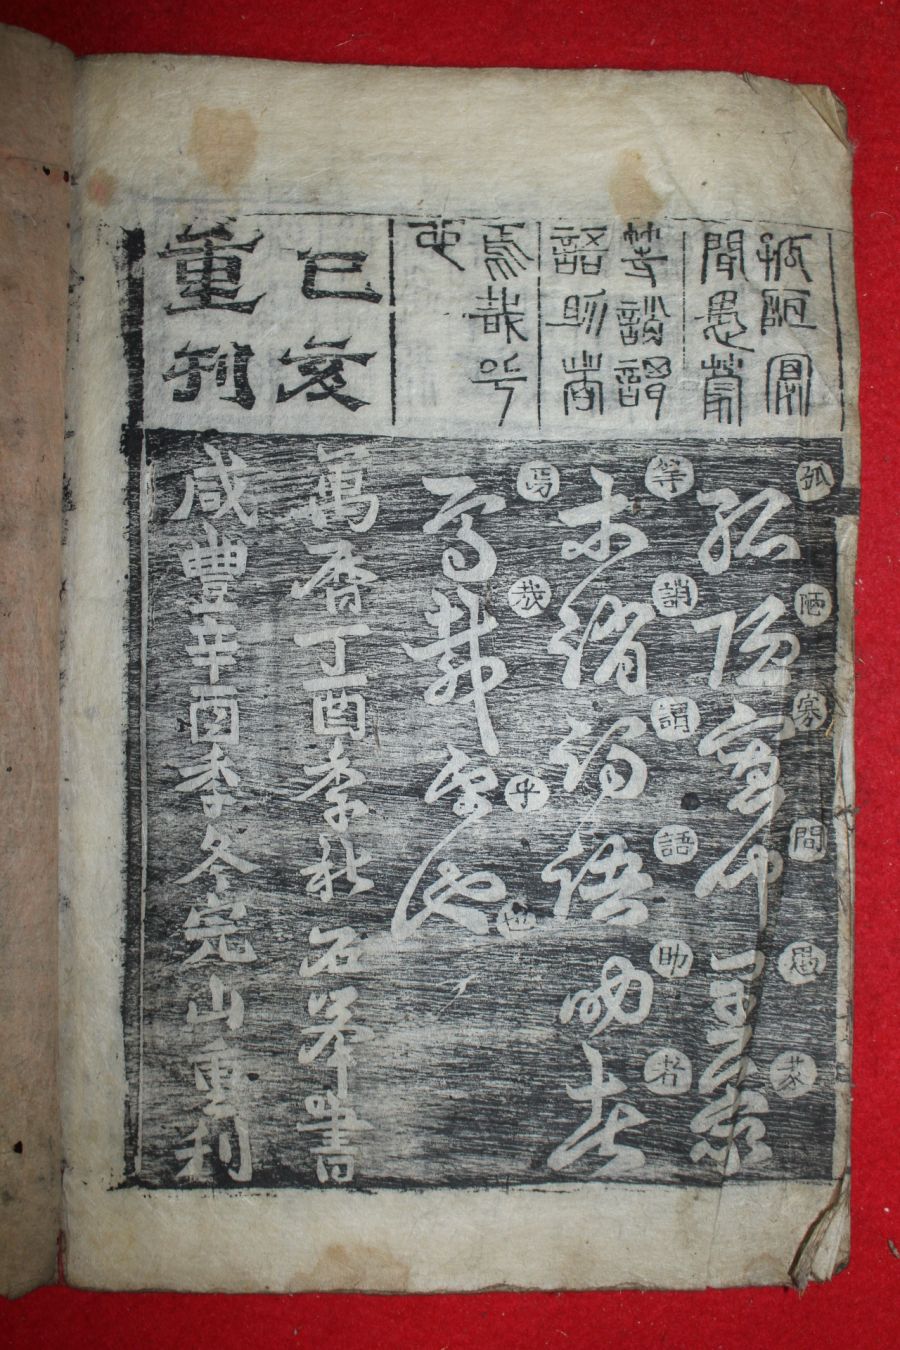 孤陋寡
聞愚蒙
等誚謂
語助者
焉哉乎
也
己亥
重刊
孤陋寡聞愚蒙
孤陋寡聞愚蒙
等誚謂語助者
等誚謂語助者
焉哉乎也
焉哉乎也
萬曆丁酉季秋石峯書
咸豐辛酉季冬完山重刊